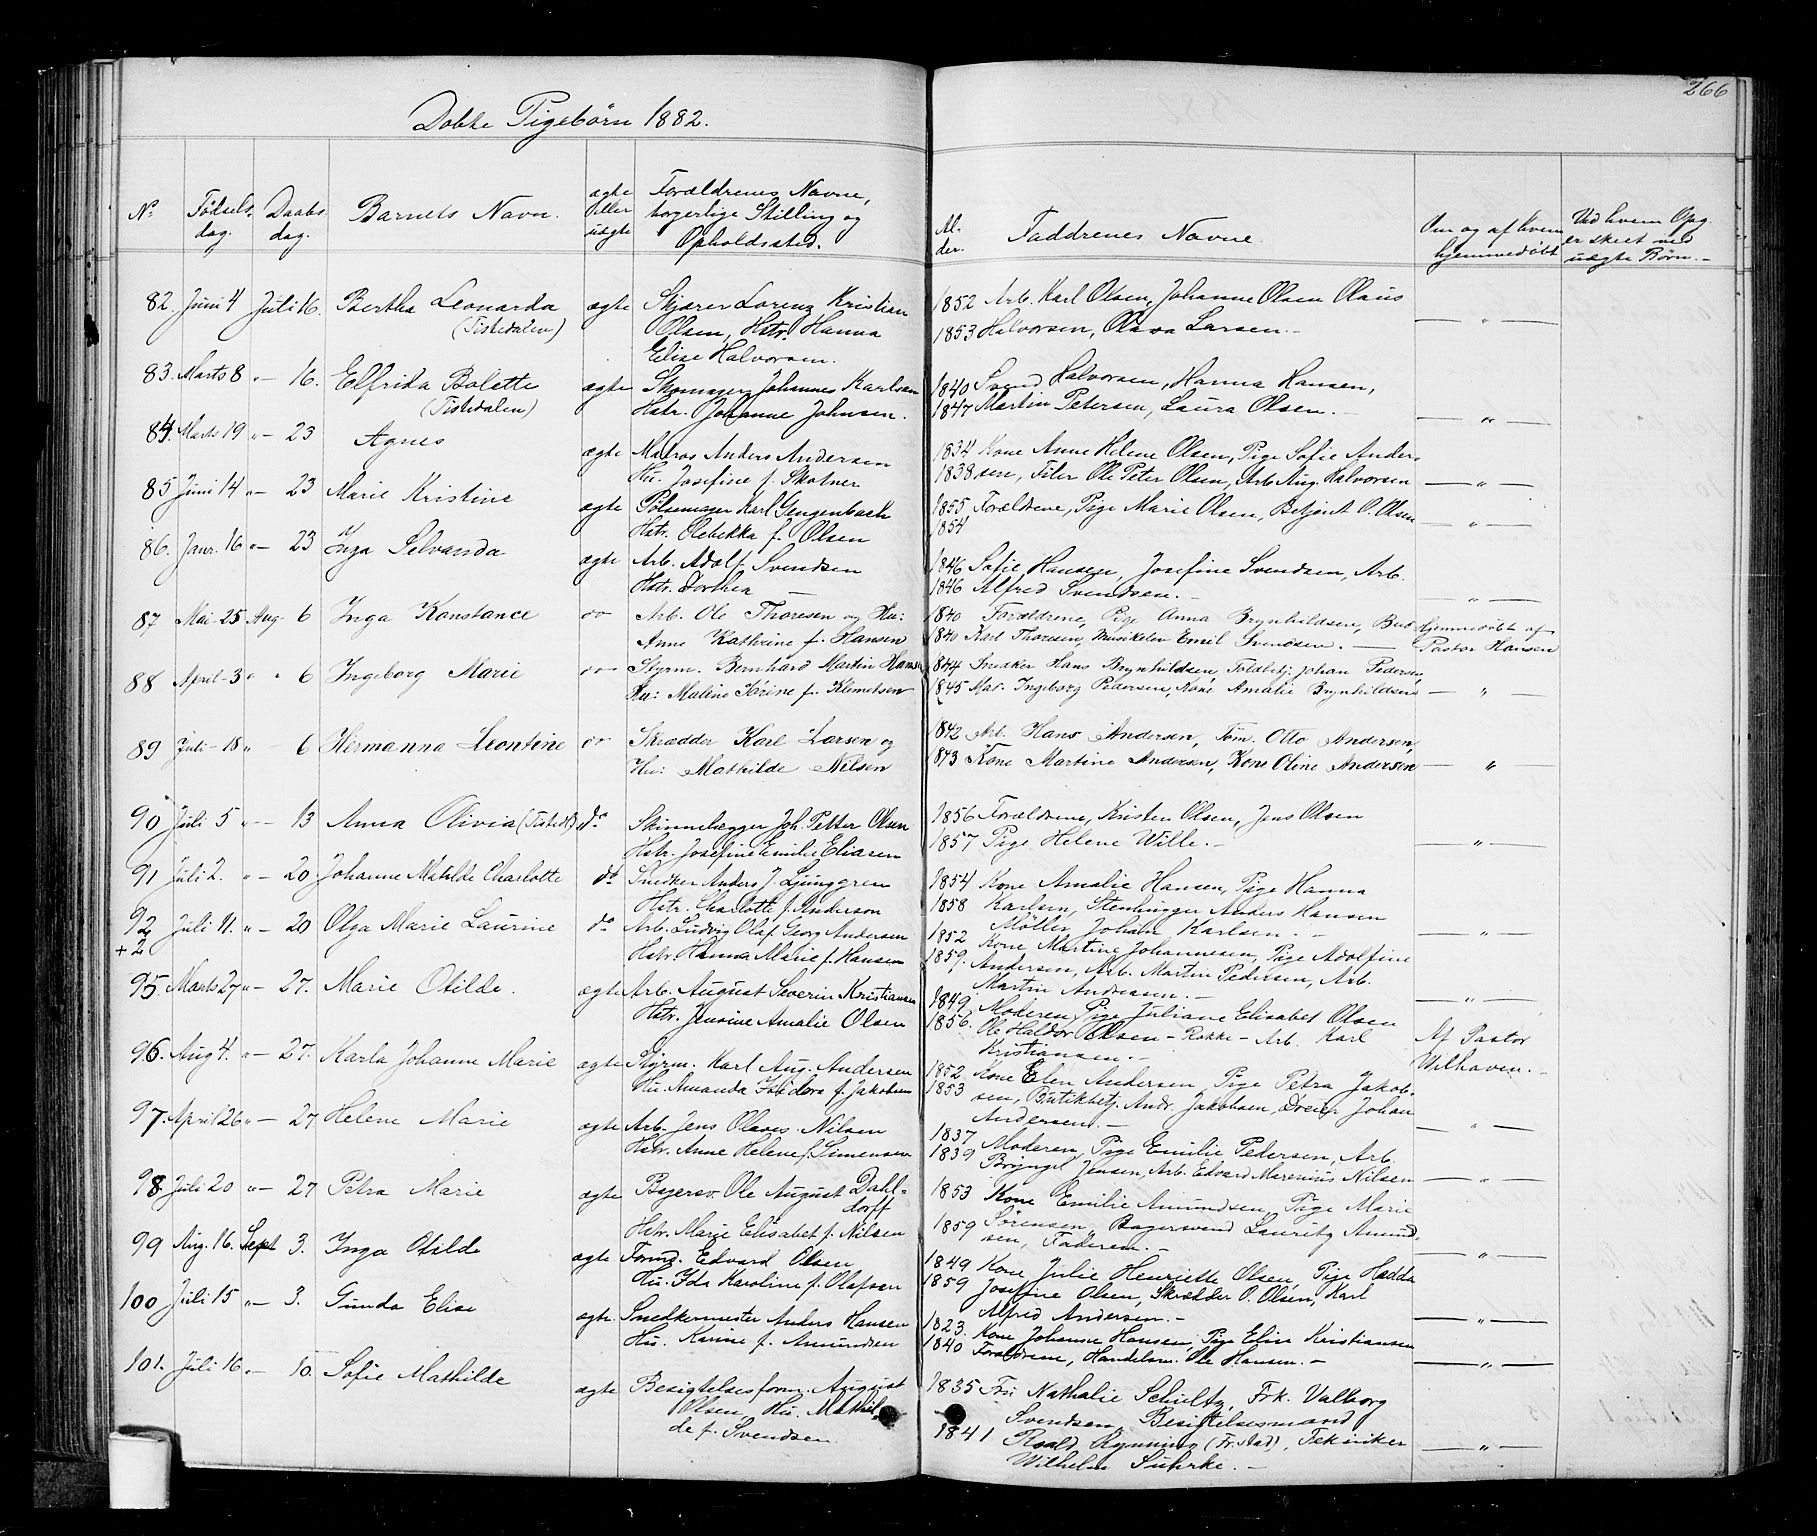 266
Døbte Pigebørn 1882.
No Fødsels dag. Daabs dag. Barnets Navn. ægte eller uægte Forældrenes Navne, borgerlige Stilling og Opholdssted.
Al- der. Faddrenes Navne. Om og af hvem hjemmedøbt Ved hvem Opg. er skeet med uægte Børn.-
82. Juni 4 Juli 16. Bertha Leonarda ægte Skjærer Lorenz Kristian 1852 Arb. Karl Olsen, Johanne Olsen Olaus
(Tistedalen) Olsen, Hstr. Hanna 1853 Halvorsen, Olava Larsen. — — " —
Elise Halvorsen.
83. Marts 8 "— 16. Elfrida Bolette ægte Skomager Johannes Karlsen 1840 Svend Halvorsen, Hanna Hansen,
(Tistedalen) Hstr. Johanne Johnsen. 1847 Martin Petersen, Laura Olsen. — — " —
84. Marts 19 "— 23 Agnes ægte Matros Anders Andersen 1834 Kone Anne Helene Olsen, Pige Sofie Ander-
Hu. Josefine f. Skotner 1838 sen, Filer Ole Peter Olsen, Arb. Aug. Halvorsen — " —
85 Juni 14 "— 23 Marie Kristine ægte Pølsemager Karl Gengenbach 1855 Forældrene, Pige Marie Olsen, Betjent O. Olsen
Hstr. Rebekka f. Olsen 1854 — " —
86. Janr. 16 "— 23 Inga Selvanda ægte Arb. Adolf Svendsen 1846 Sofie Hansen, Josefine Svendsen, Arb.
Hstr. Dorthea — 1846 Alfred Svendsen. — — " —
87 Mai 25 Aug 6 Inga Konstance do Arb. Ole Thoresen og Hu: 1840 Forældrene, Pige Anna Brynhildsen, Hjemmedøbt af
Anne Kathrine f. Hansen 1840 Karl Thoresen, Musikeler Emil Svendsen. — Pastor Hansen
88 April 3 " " 6 Ingeborg Marie do Styrm. Bernhard Martin Hansen 1844 Snedker Hans Brynhildsen, Toldbetj. Johan Pedersen,
Hu: Maline Karine f. Klemetsen 1845 Mad. Ingeborg Pedersen, Kone Amalie Brynhildsen — " —
89 Juli 18 " 6 Hermanna Leontine do Skrædder Karl Larsen og 1842 Arb. Hans Andersen, Tøm. Otto Andersen,
Hu: Mathilde Nilsen 1843 Kone Martine Andersen, Kone Oline Andersen — " —
90 Juli 5 "— 13 Anna Olivia (Tistedl.) do Skinnelægger Joh. Petter Olsen 1856 Forældrene, Kristen Olsen, Jens Olsen
Hstr. Josefine Emilie Eliasen 1857 Pige Helene Wille. — — " —
91 Juli 2. "— 20 Johanne Matilde Charlotte do Snedker Anders J. Ljunggren 1854 Kone Amalie Hansen, Pige Hanna
Hstr. Charlotte f. Anderson 1858 Karlsen, Stenhugger Anders Hansen
92 Juli 11. "— 20 Olga Marie Laurine do Arb. Ludvig Olaf Georg Andersen Møller, Johan Karlsen. — — " —
+2 Hstr. Hanna Marie f. Hansen 1852 Kone Martine Johannesen, Pige Adolfine
1859. Andersen, Arb. Martin Pedersen, Arb.
95. Marts 27 "— 27. Marie Otilde. ægte Arb. August Severin Kristiansen Martin Andreasen. — — " —
Hstr. Jensine Amalie Olsen 1849 Moderen, Pige Juliane Elisabet Olsen
1856. Ole Haldor Olsen - Rokke - Arb. Karl Af Pastor
96. Aug 4. "— 27. Karla Johanne Marie ægte Styrm. Karl Aug. Andersen Kristiansen. — Wilhaven. —
Hu. Amanda Isidora f. Jakobsen 1852 Kone Elen Andersen, Pige Petra Jakob-
1853 sen, Butikbetj. Andr. Jakobsen, Dreier Johan
97. April 26 "— 27 Helene Marie ægte Arb. Jens Olaves Nilsen Andersen. — — " —
Hstr. Anne Helene f. Simensen 1837 Moderen, Pige Emilie Pedersen, Arb.
1839 Brynjel Jensen, Arb. Edvard Marenius Nilsen — " —
98. Juli 20 "— 27 Petra Marie ægte Bagersv. Ole August Dahl- 1853 Kone Emilie Amundsen, Pige Marie
dorff
Hstr. Marie Elisabet f. Nilsen 1859 Sørensen, Bagersvend Lauritz Amund-
99 Aug. 16. Sept 3. Inga Otilde ægte Formd. Edvard Olsen sen, Faderen. — — " —
Hu. Ida Karoline f. Olafsen 1849 Kone Julie Henriette Olsen, Pige Hedda
1859 Josefine Olsen, Skrædder O. Olsen, Karl
100 Juli 15 "— 3. Gunda Elise ægte Snedkermester Anders Hansen Alfred Andersen. — — " —
Hu. Karine f. Amundsen 1823. Kone Johanne Hansen, Pige Elise Kristiansen
1840 Forældrene, Handelsm. Ole Hansen. — — " —
101. Juli 16 "— 10. Sofie Mathilde ægte Besigtelsesform. August 1835 Fru Nathalie Schultz, Frk. Valborg
Olsen, Hu. Mathil- Svendsen, Besigtelsesmand
de f. Svendsen 1841 Roald Rynning (Fr.stad), Tekniker — " —
Wilhelm Suhrke. —